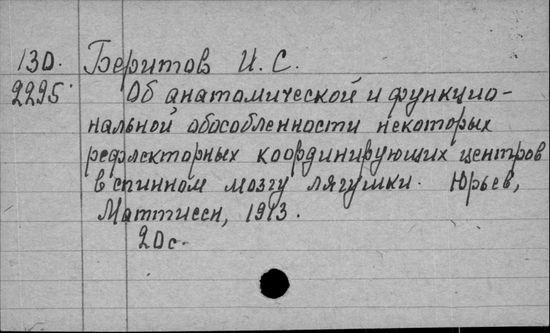 130. Беритов И. С.
2295 Об анатомической и функцио-
нальной обособленности некоторых
рефлекторных координирующих центров
в спинном мозгу лягушки. Юрьев,
Маттисен, 1913.
20с.